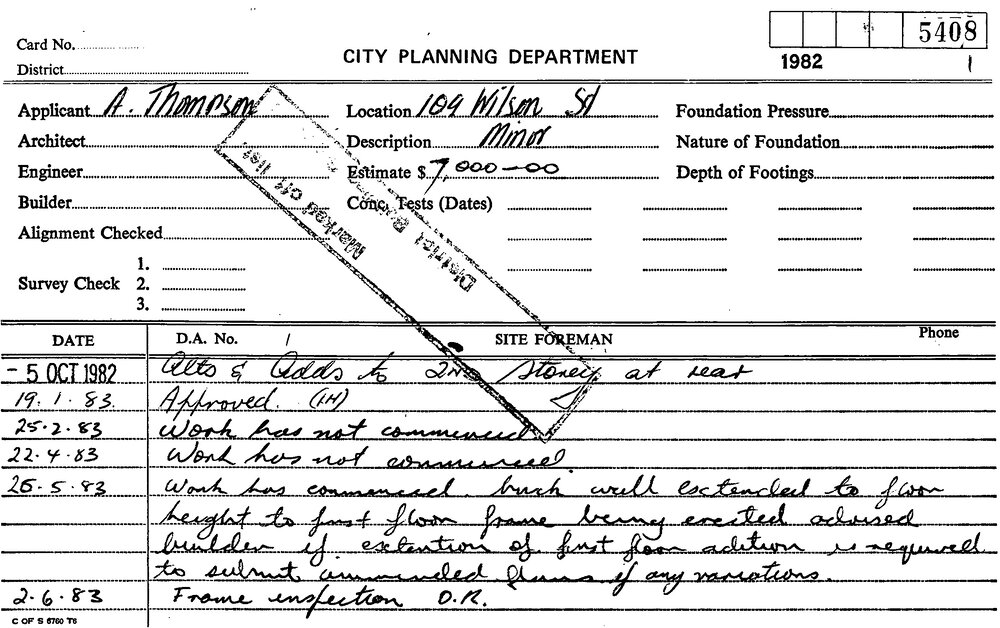 5408
Card No.
CITY PLANNING DEPARTMENT
1982 1
District
Applicant A. Thompson Location 109 Wilson St Foundation Pressure
Architect Description Minor Nature of Foundation
Engineer Estimate $ 7,000-00 Depth of Footings
Builder Conc. Tests (Dates)
Alignment Checked
1.
Survey Check 2.
3.
Marked off list
District
DATE D.A. No. / SITE FOREMAN Phone
- 5 OCT 1982 Alts & Adds to 2ND Storey at rear
19.1.83. Approved. (IH)
25.2.83 Work has not commenced
22.4.83 Work has not commenced.
26.5.83 Work has commenced. brick wall extended to floor
height to first floor frame being erected advised
builder if extention of first floor adition is required
to submit ammended plans if any variations.
2.6.83 Frame inspection O.K.
C OF S 6760 T6